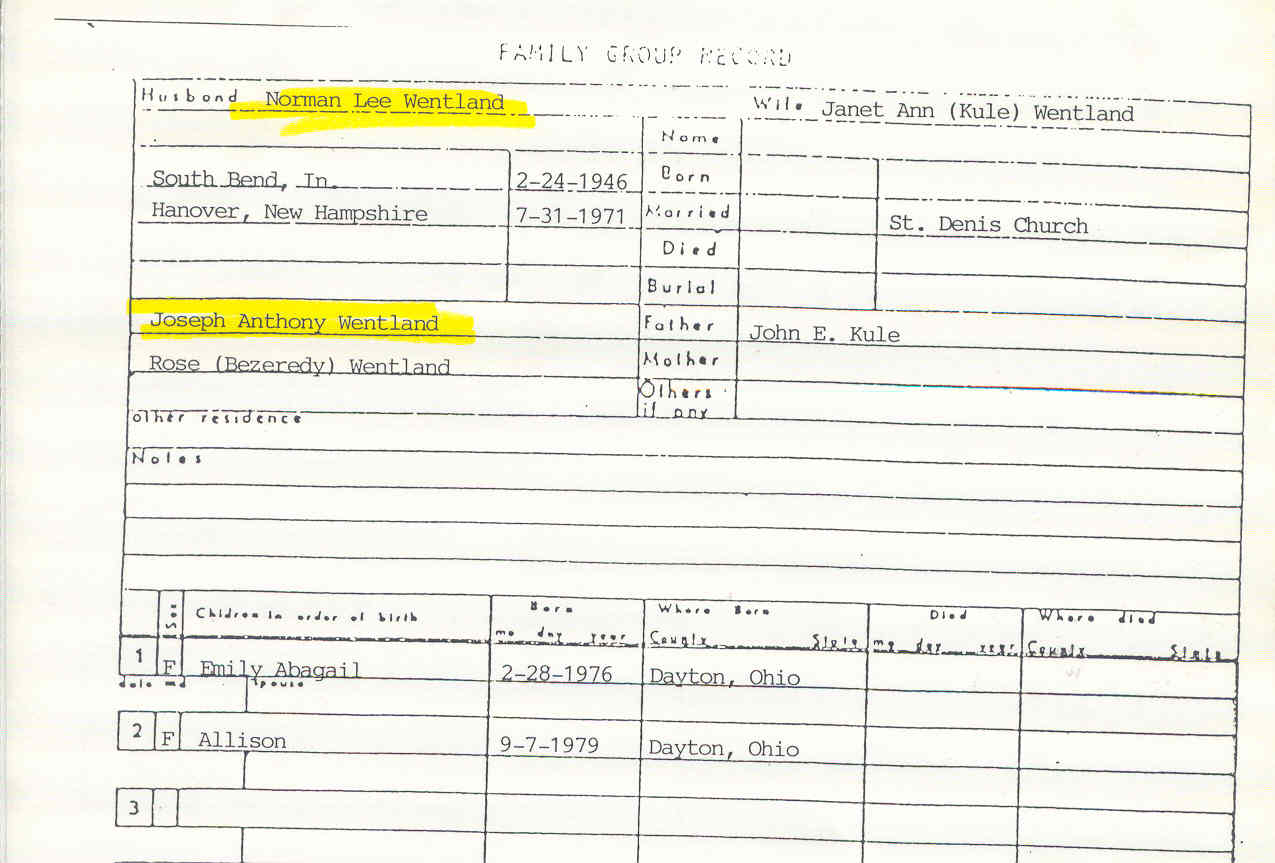 FAMILY GROUP RECORD
Husband Norman Lee Wentland Wife Janet Ann (Kule) Wentland
Name
South Bend, In. 2-24-1946 Born
Hanover, New Hampshire 7-31-1971 Married St. Denis Church
Died
Burial
Joseph Anthony Wentland Father John E. Kule
Rose (Bezeredy) Wentland Mother
Others
if any
other residence
Notes
Sex Children in order of birth Born Where Born Died Where died
mo day year County State mo day year County State
1 F Emily Abagail 2-28-1976 Dayton, Ohio
date md spouse
2 F Allison 9-7-1979 Dayton, Ohio
3